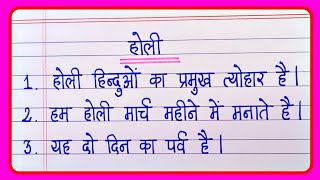 होली
1. होली हिन्दुओं का प्रमुख त्योहार है।
2. हम होली मार्च महीने में मनाते है।
3. यह दो दिन का पर्व है।